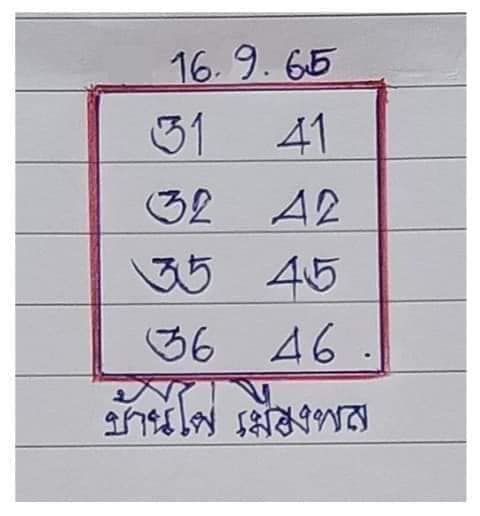 16.9.65
31 41
32 42
35 45
36 46.
บ้านไผ่ เมืองพล